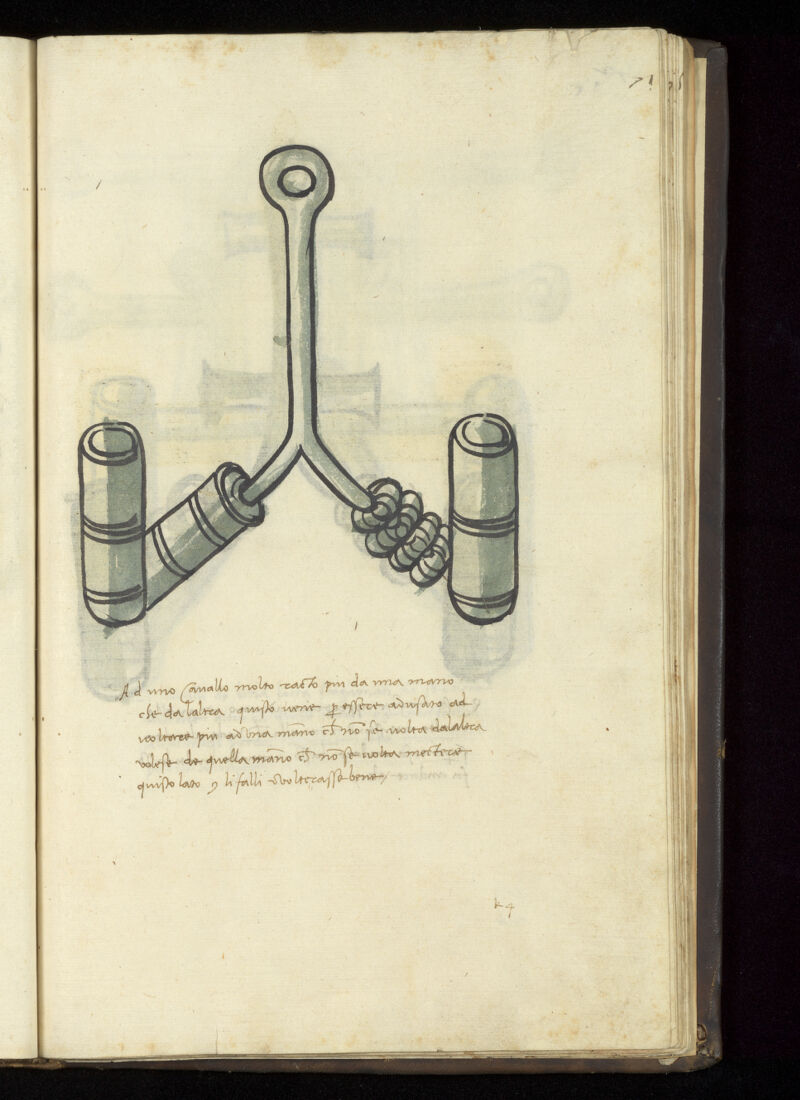 71
Ad uno Cavallo molto racto piu da una mano
che da laltra quisto vene p essere adusato ad
voltare piu ad una mano ch no se volta dalaltra
volese de quella mano ch no se volta mectere
quisto lato li falli voltarasse bene
k 4